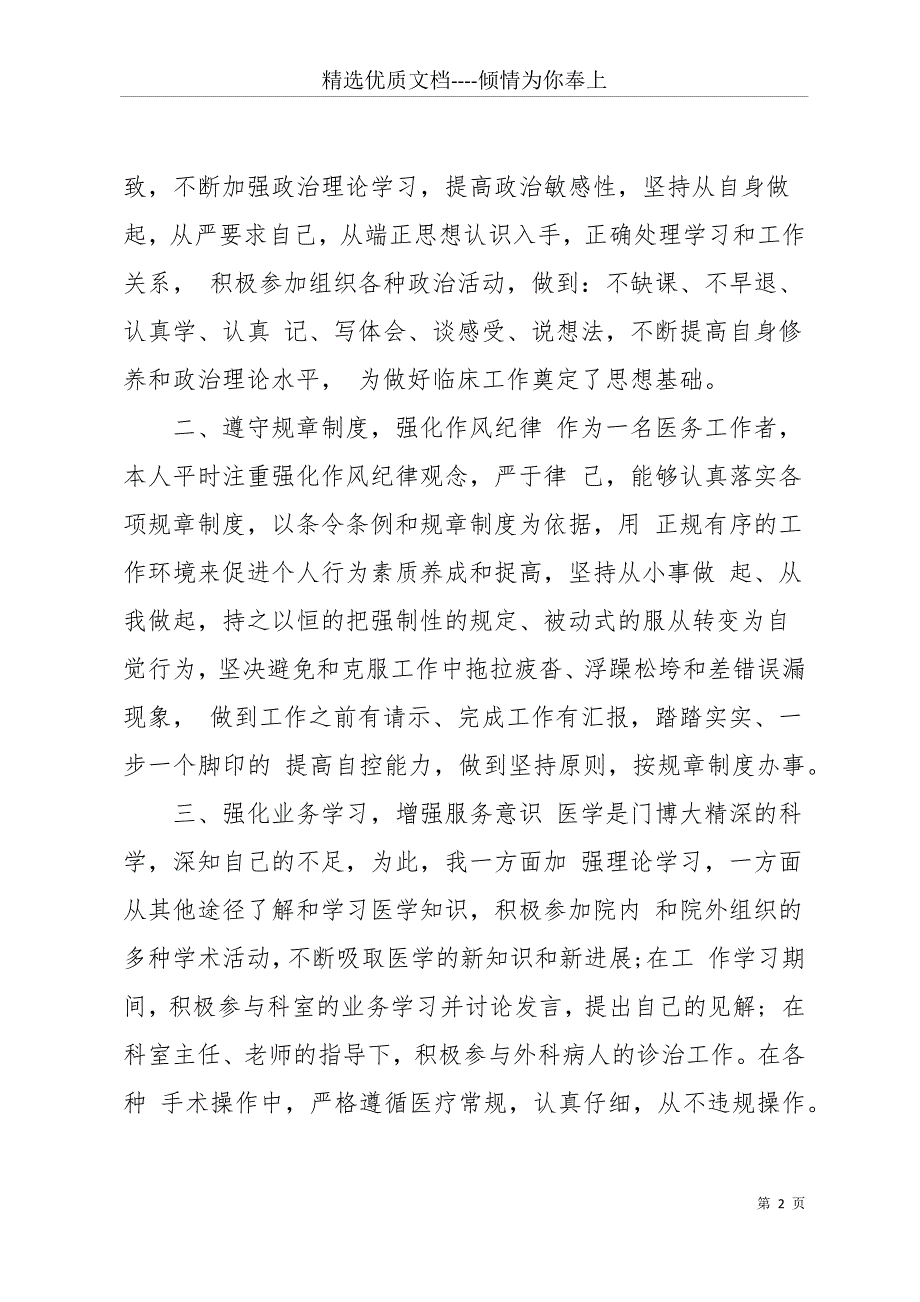 精选优质文档----倾情为你奉上
致，不断加强政治理论学习，提高政治敏感性，坚持从自身做
起，从严要求自己，从端正思想认识入手，正确处理学习和工作
关系， 积极参加组织各种政治活动，做到：不缺课、不早退、
认真学、认真 记、写体会、谈感受、说想法，不断提高自身修
养和政治理论水平， 为做好临床工作奠定了思想基础。
二、遵守规章制度，强化作风纪律 作为一名医务工作者，
本人平时注重强化作风纪律观念，严于律 己，能够认真落实各
项规章制度，以条令条例和规章制度为依据，用 正规有序的工
作环境来促进个人行为素质养成和捉高，坚持从小事做 起、从
我做起，持之以恒的把强制性的规定、被动式的服从转变为自
觉行为，坚决避免和克服工作中拖拉疲沓、浮躁松垮和差错误漏
现象， 做到工作之前有请示、完成工作有汇报，踏踏实实、一
步一个脚印的 提高自控能力，做到坚持原则，按规章制度办事。
三、强化业务学习，增强服务意识 医学是门博大精深的科
学，深知自己的不足，为此，我一方面加 强理论学习，一方面
从其他途径了解和学习医学知识，积极参加院内 和院外组织的
多种学术活动，不断吸取医学的新知识和新进展;在工 作学习期
间，积极参与科室的业务学习并讨论发言，提出自己的见解；在
科室主任、老师的指导下，积极参与外科病人的诊治工作。在各
种 手术操作中，严格遵循医疗常规，认真仔细，从不违规操作。
第 2 页